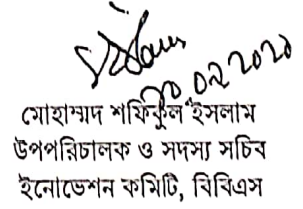 ২০.০২.২০২০
মোহাম্মদ শফিকুল ইসলাম
উপপরিচালক ও সদস্য সচিব
ইনোভেশন কমিটি, বিবিএস